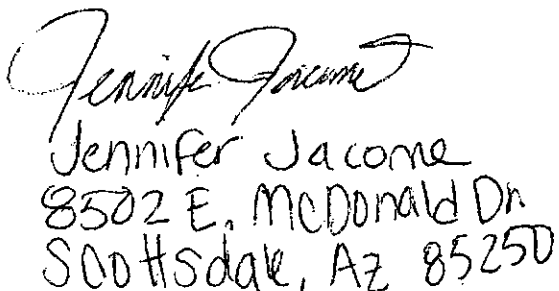 Jennifer Jacome
Jennifer Jacome
8502 E. McDonald Dr
Scottsdale, Az 85250